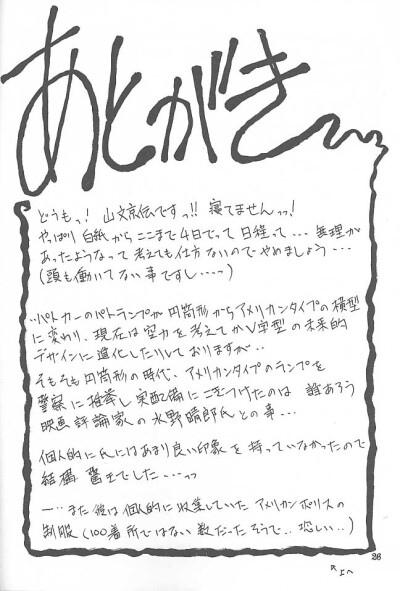 あとがき
どうもっ! 山文京伝ですっ!! 寝てませんっっ!
やっぱり 白紙からここまで4日でって 日程って... 無理が
あったようなって 考えても仕方ないのでやめましょう...
(頭も働いてない事ですし...っ)
パトカーのパトランプが 円筒形からアメリカンタイプの横型
に変わり、現在は空力を考えてかV字型の未来的
デザインに進化したりしておりますが..
そもそも円筒形の時代、アメリカンタイプのランプを
警察に推奏し実配備にこぎつけたのは 誰あろう
映画評論家の水野晴郎氏との事...
個人的に氏にはあまり良い印象を持っていなかったので
結構 でした...っっ
一..また彼は個人的に収集していたアメリカンポリスの
制服(100着所ではない数だったそうで..恐しい..)
26